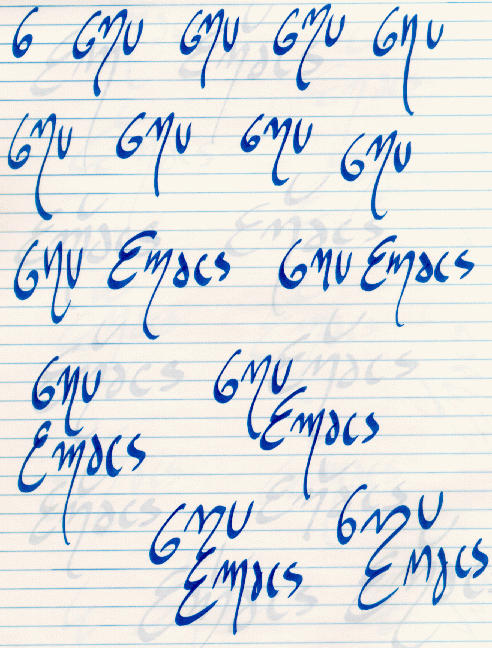 G GNU GNU GNU GNU
GNU GNU GNU GNU
GNU Emacs GNU Emacs
GNU GNU
Emacs Emacs
GNU GNU
Emacs Emacs